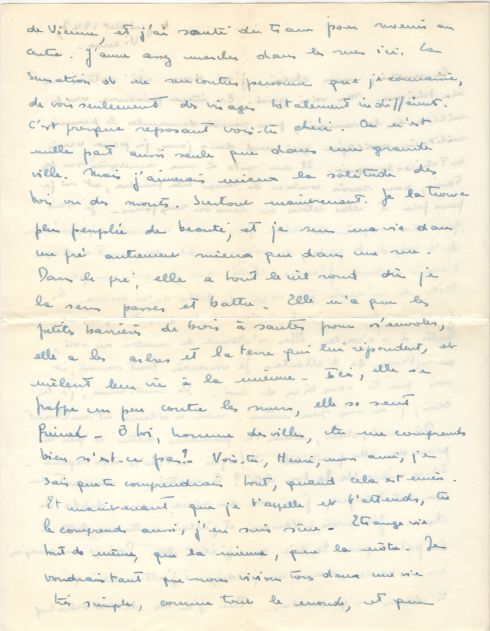 de Vienne, et j'ai sauté du tram pour revenir au
centre. J'aime assez marcher dans les rues ici. La
sensation de ne rencontrer personne que je connaisse,
de voir seulement des visages totalement indifférents.
C'est presque reposant vois-tu chéri. On n'est
nulle part aussi seule que dans une grande
ville. Mais j'aimerais mieux la solitude des
bois ou des monts. Surtout maintenant. Je la trouve
plus peuplée de beauté, et je sens ma vie dans
un pré autrement mieux que dans une rue.
Dans le pré, elle a tout le ciel rond où je
la sens passer et battre. Elle n'a que les
petites barrières de bois à sauter pour s'envoler,
elle a les arbres et la terre qui lui répondent, et
mêlent leur vie à la mienne. Ici, elle se
frappe un peu contre les murs, elle se sent
O toi, homme des villes, tu me comprends
bien n'est-ce pas? Vois-tu, Henri, mon ami, je
sais que tu comprendrais tout, quand cela est mien.
Et maintenant que je t'appelle, et t'attends, tu
le comprends aussi, j'en suis sûre. Etrange vie
tout de même, que la mienne, que la nôtre. Je
voudrais tant que nous vivions tous deux une vie
très simple, comme tout le monde, et que